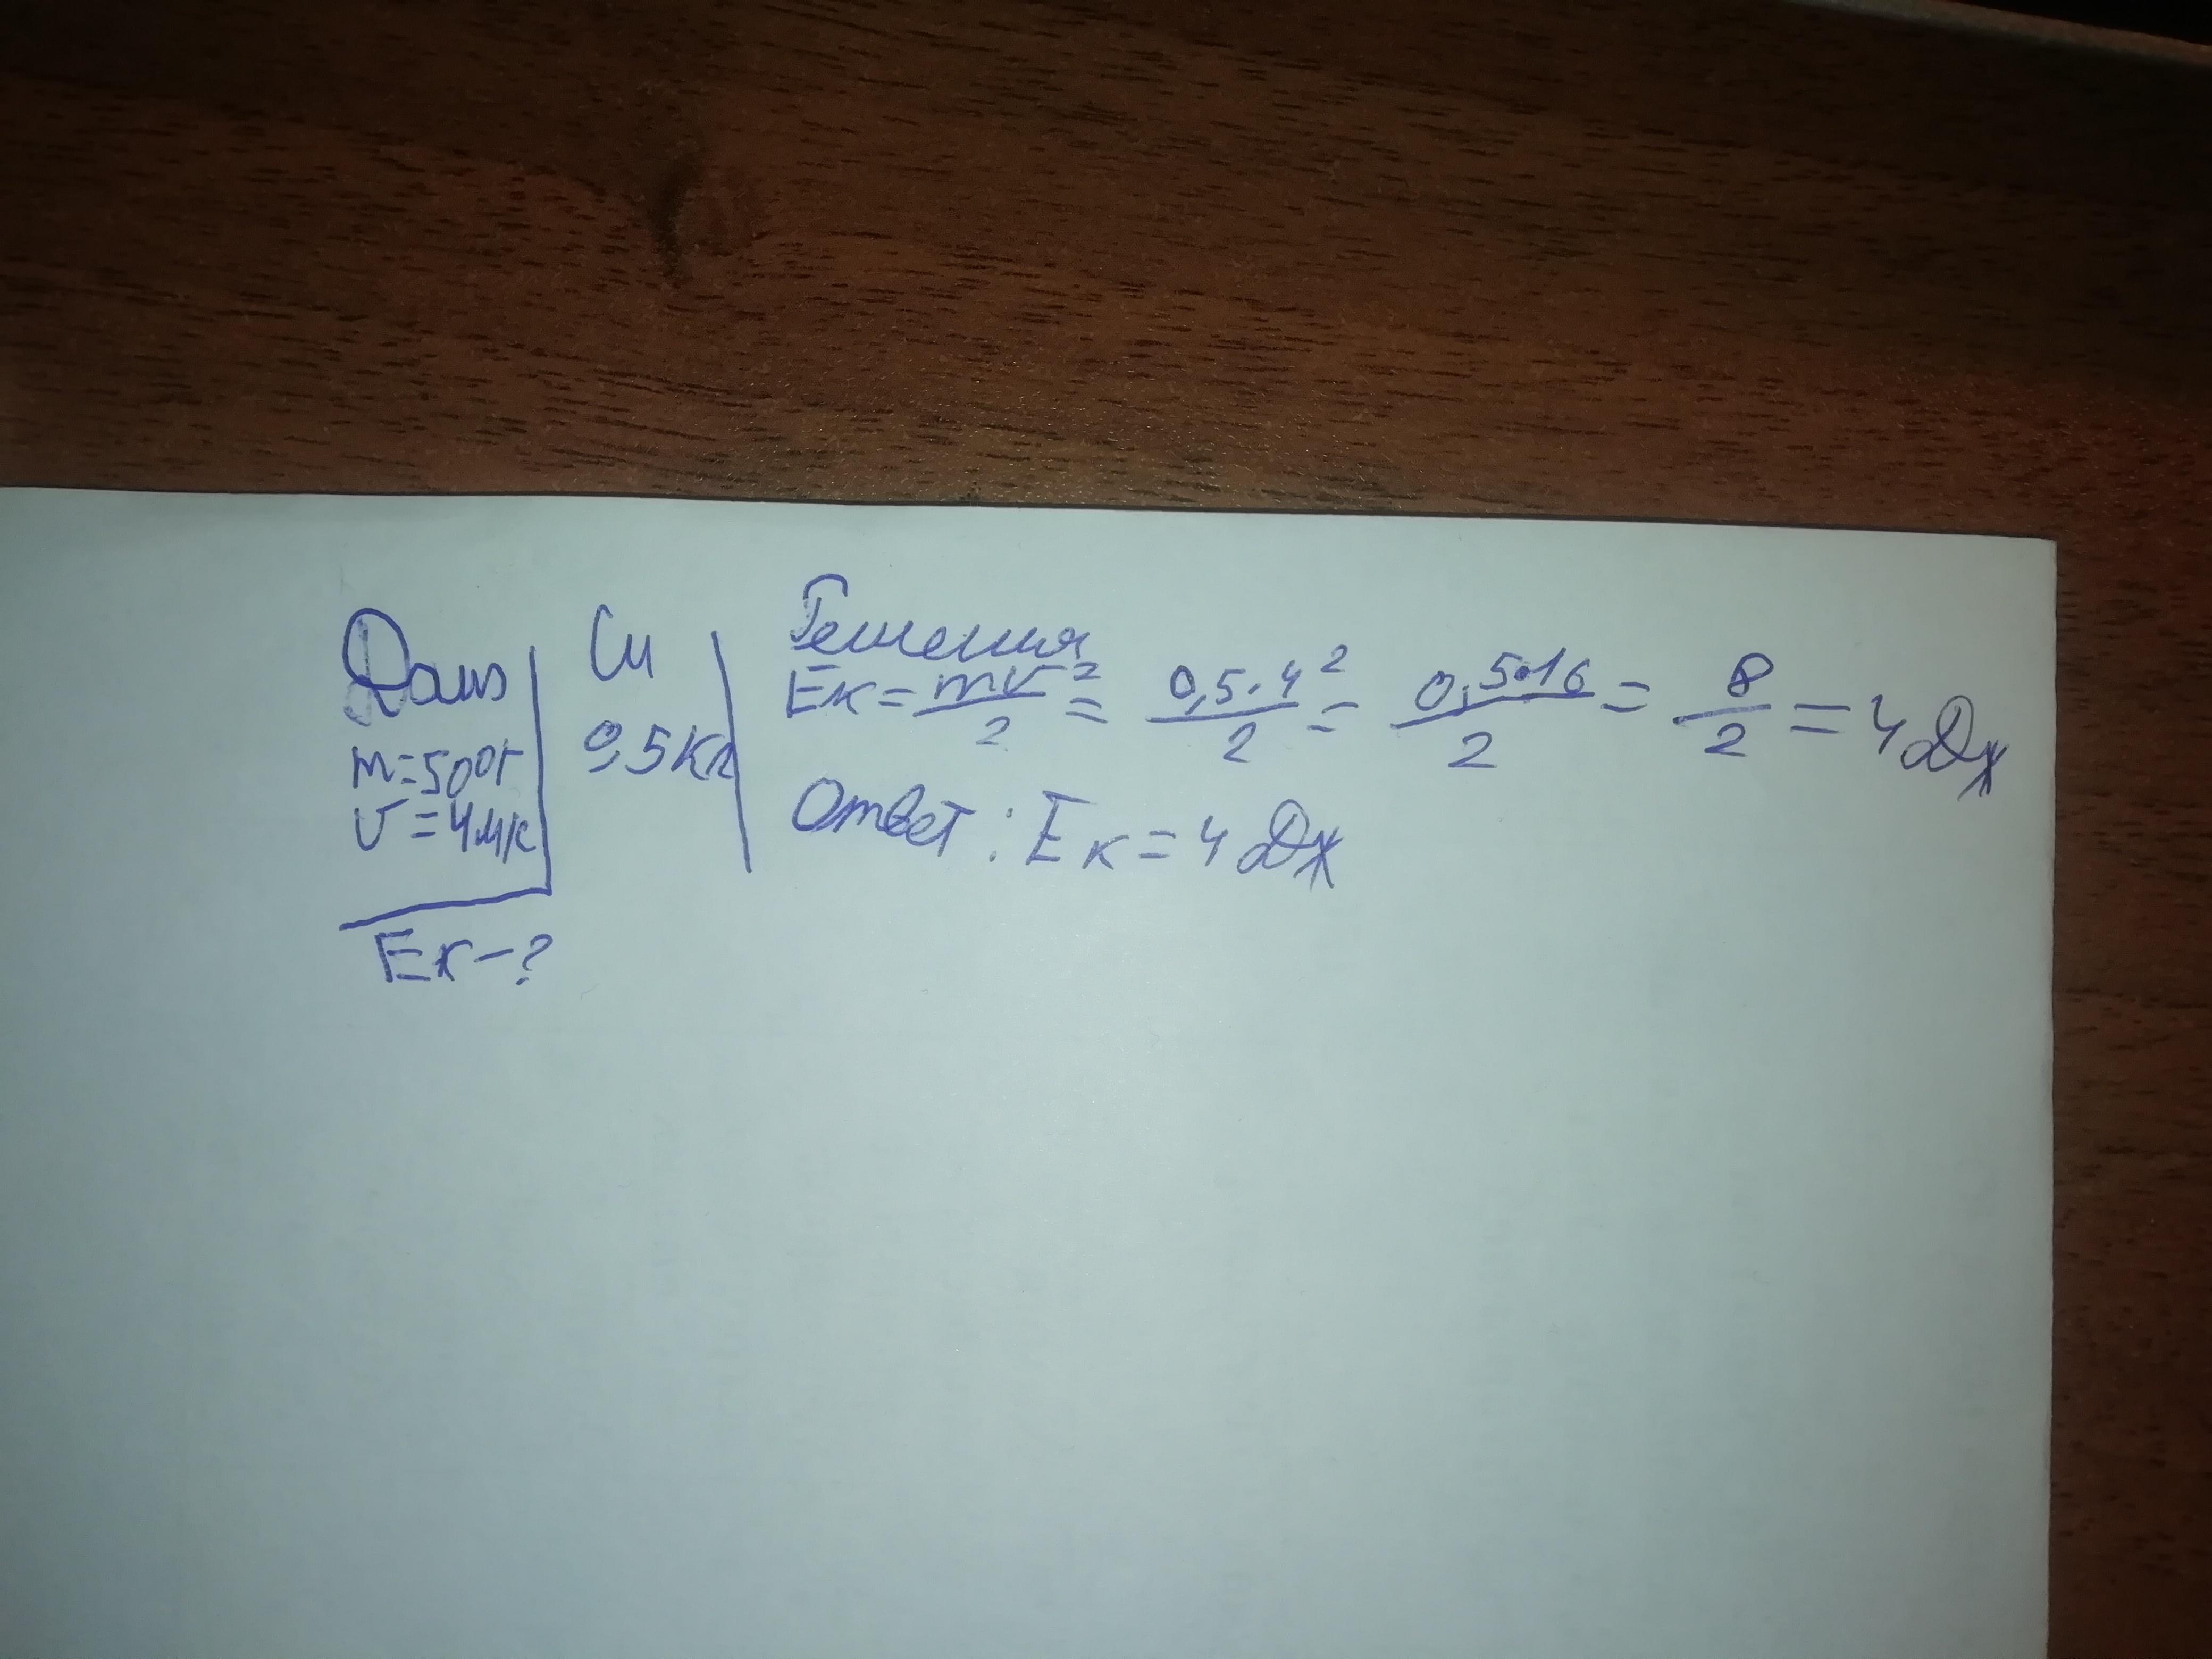 Дано
m=500г
v=4м/с
Eк-?
Си
0,5кг
Решения
Eк=mv²/2=0,5·4²/2=0,5·16/2=8/2=4Дж
Ответ: Eк=4Дж